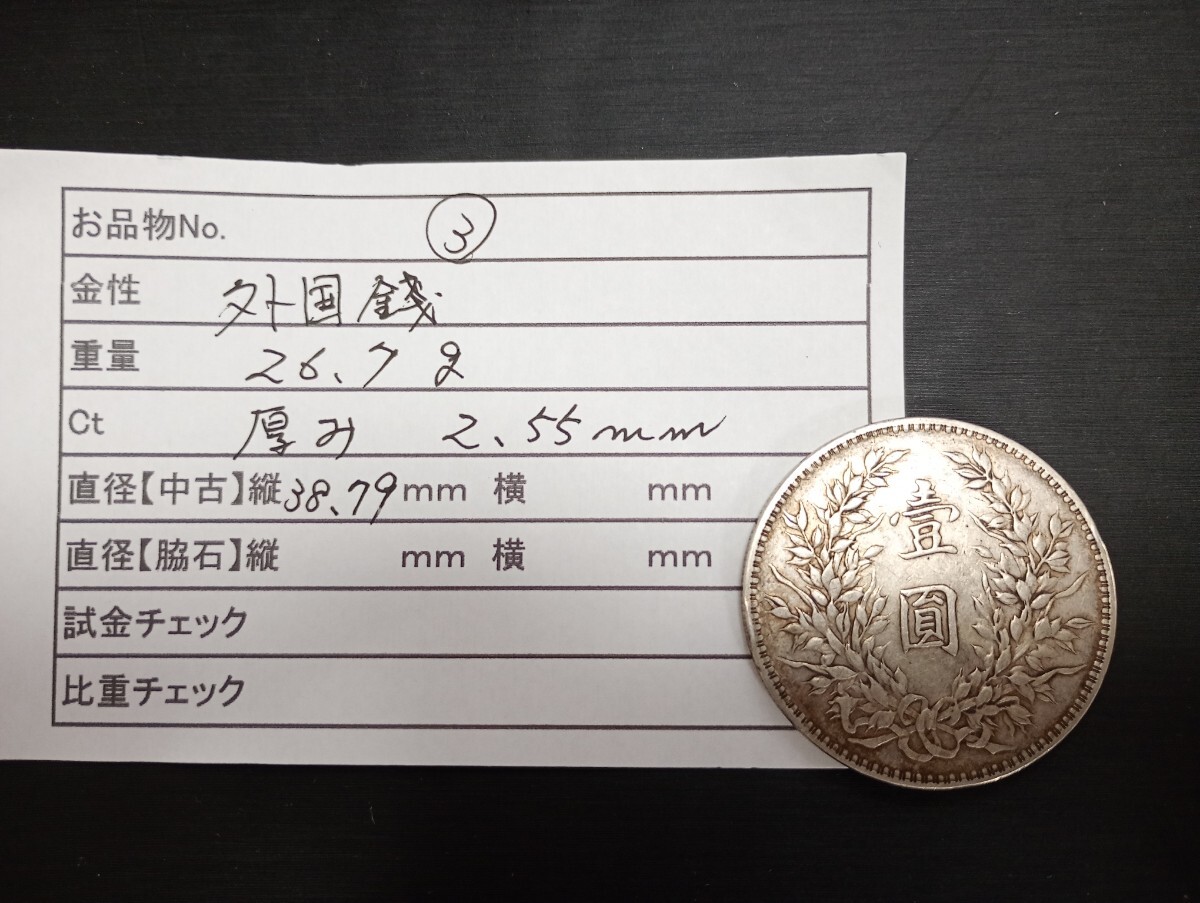 お品物No. ③
金性 外国銭
重量 26.7g
Ct 厚み 2.55mm
直径【中古】縦38.79mm 横 mm
直径【脇石】縦 mm 横 mm
試金チェック
比重チェック
壹
圓